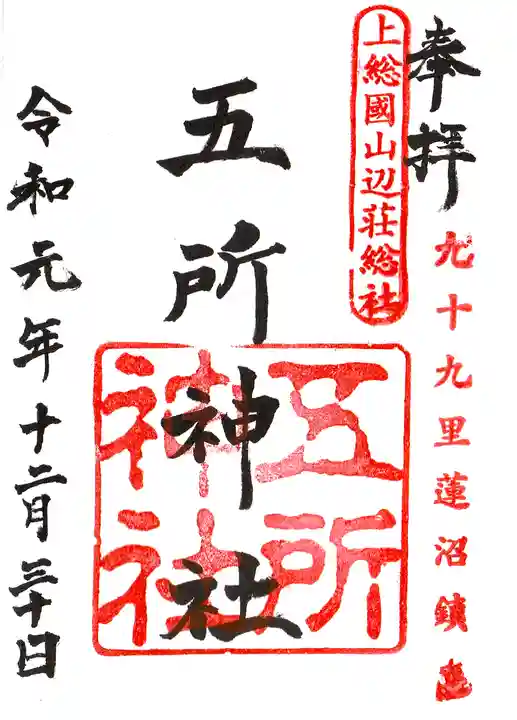 奉拝
九十九里蓮沼鎮
上総國山辺荘総社
五所神社
五所神社
令和元年十二月三十日